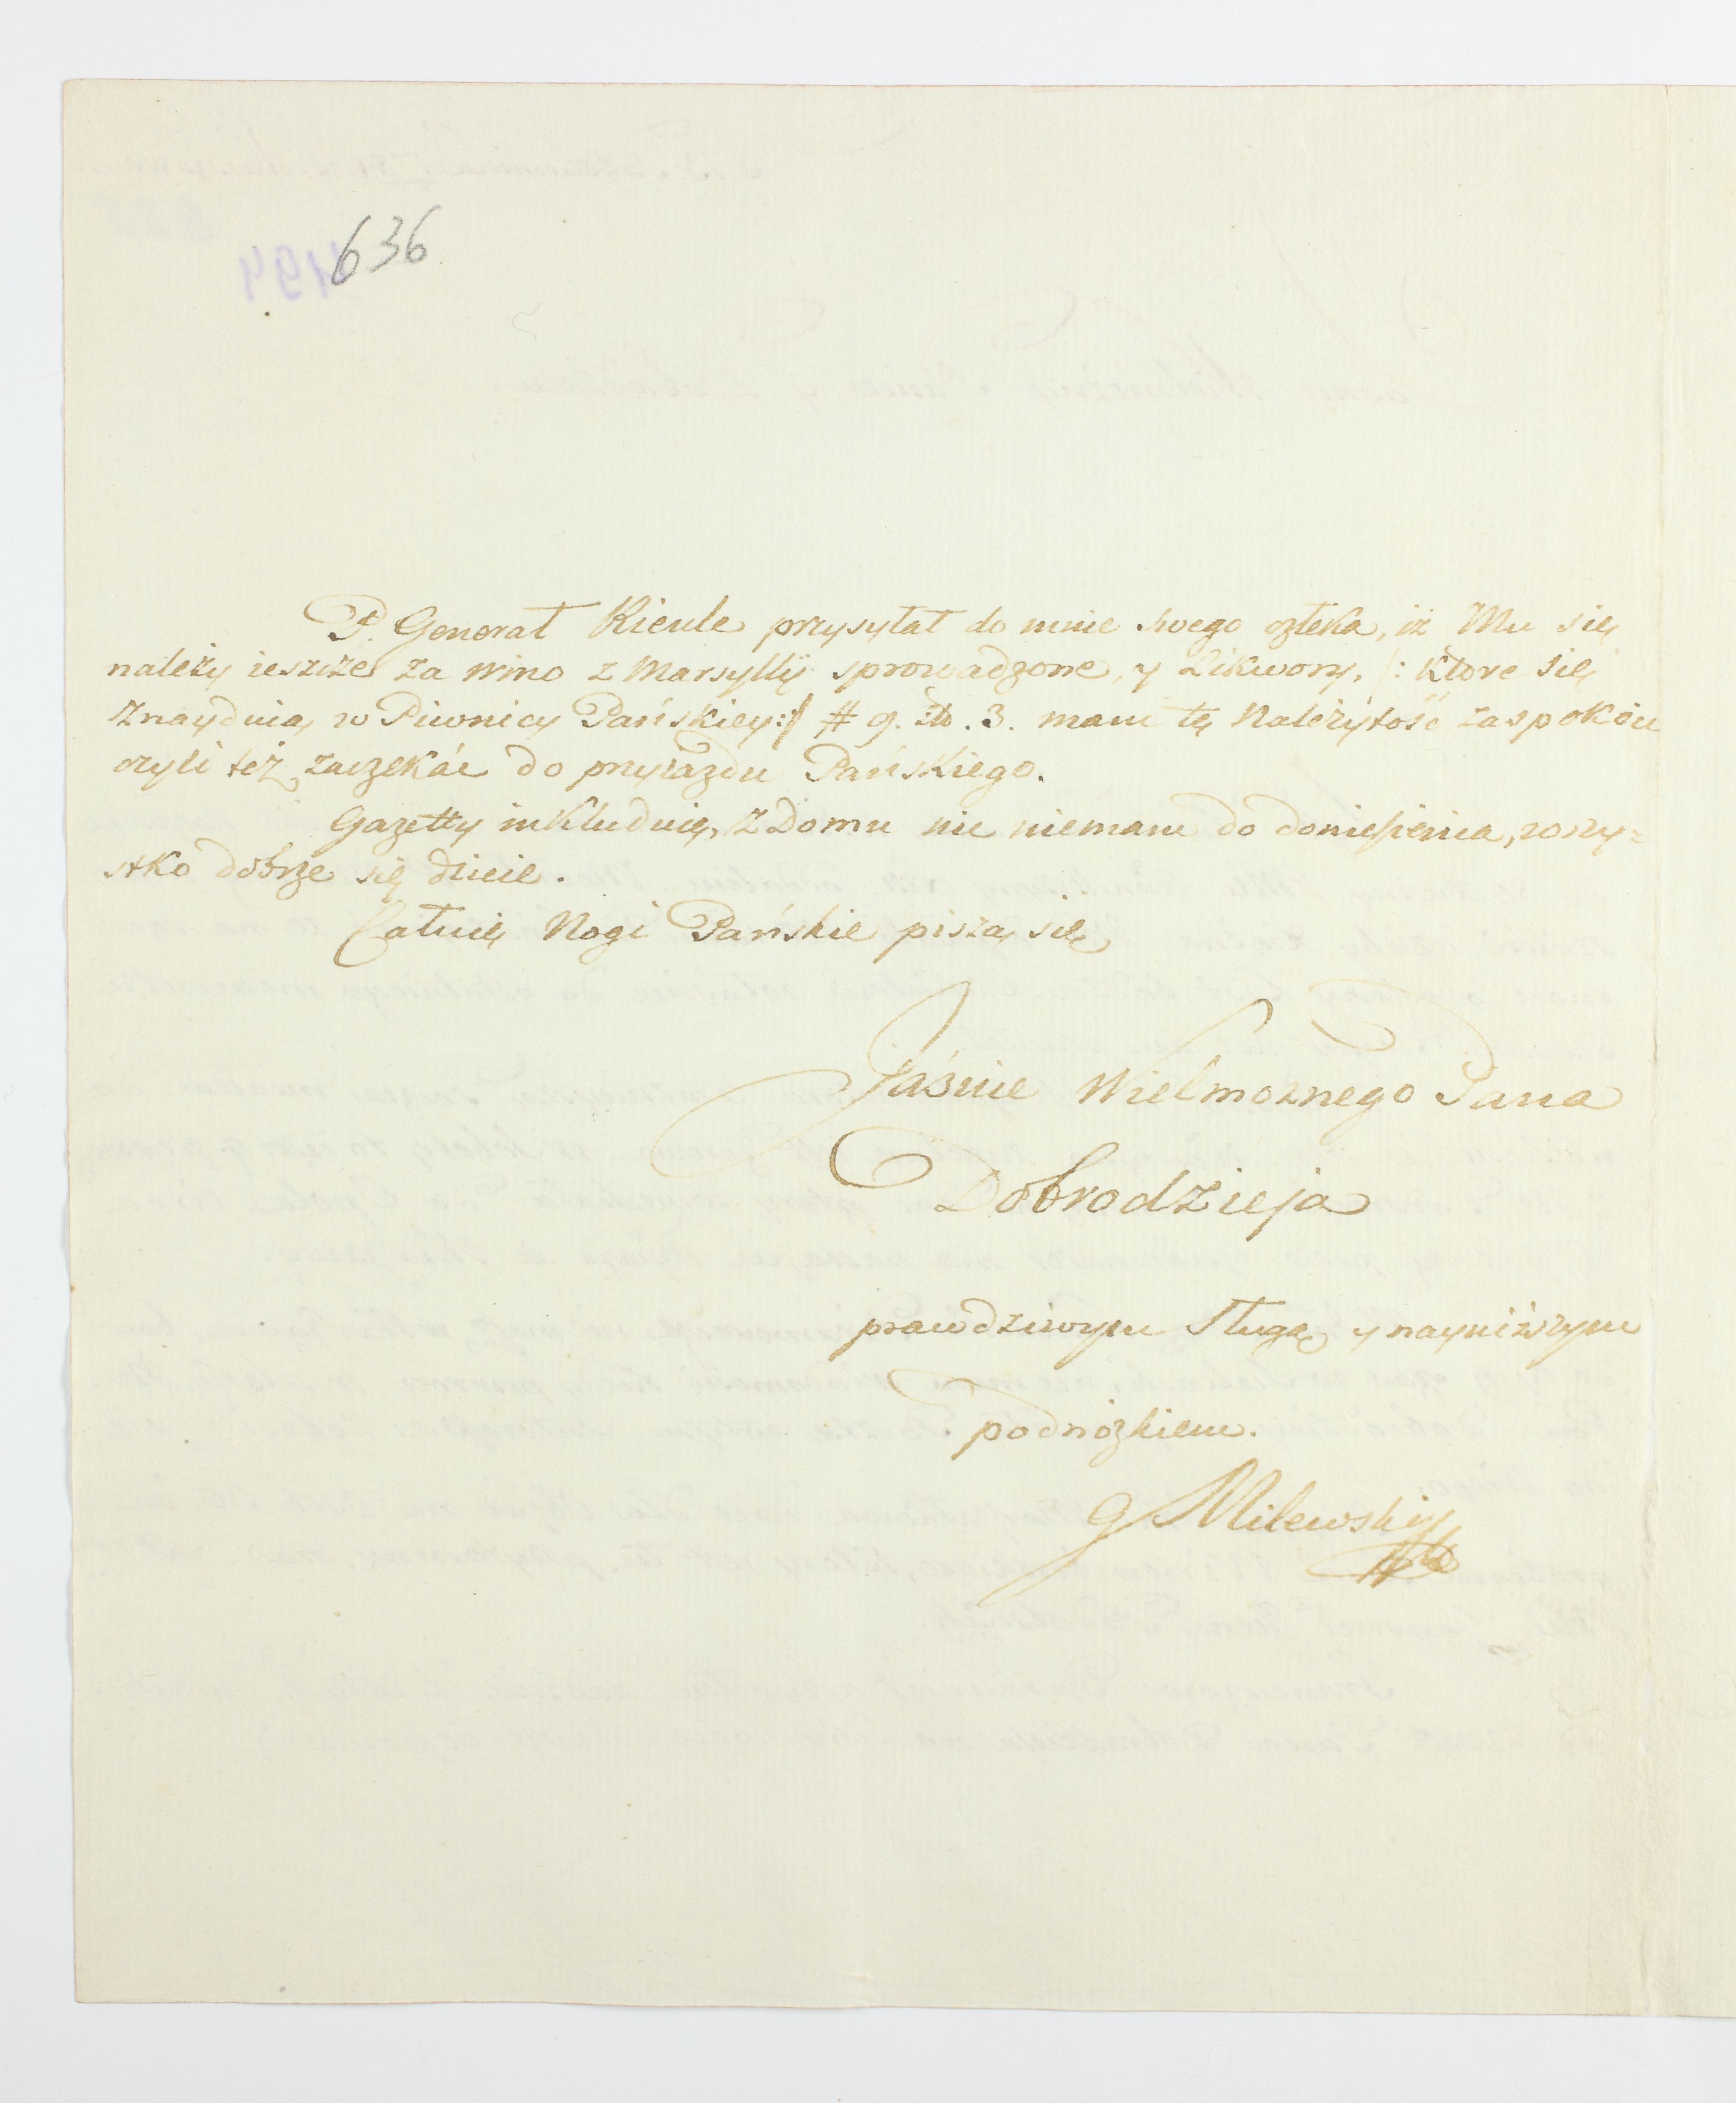 636
P. Generał Kieule przysyłał do mnie swego człeka, iż Mu się
należy ieszcze za wino z Marsyllij sprowadzone, y Likwory, /: ktore się
znayduią w Piwnicy Pańskiey :/ # 9. zło. 3. mam tę Należytość zaspokoić
czyli też zaczekáć do przyiazdu Pańskiego.
Gazetty inkluduię, z Domu nic niemam do doniesienia, wszy=
stko dobrze się dzieie.
Całuię Nogi Pańskie piszą się
Jaśnie Wielmoznego Pana
Dobrodzieja
prawdziwym Sługą y nayniższym
podnóżkiem.
G Milewski